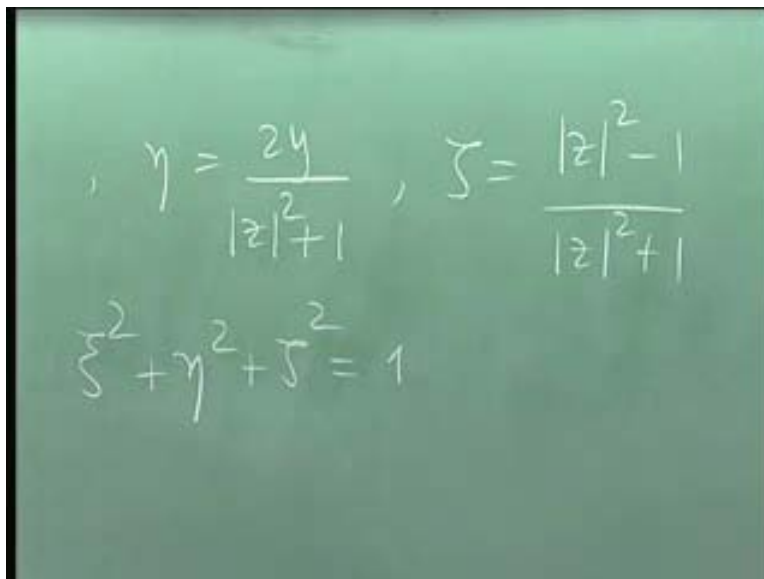 , η = 2y / |z|² + 1 , ζ = |z|² - 1 / |z|² + 1
ξ² + η² + ζ² = 1